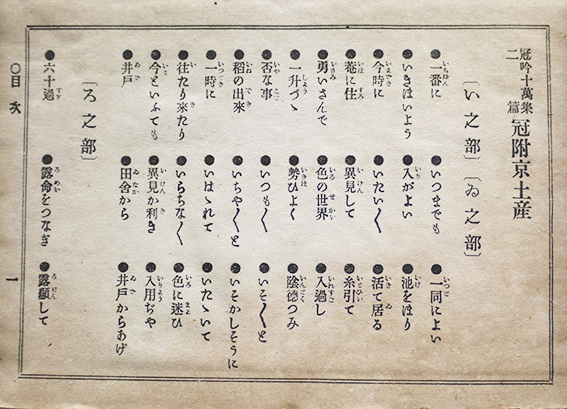 冠吟十萬集
二篇
冠附京土産
〔い之部〕〔ゐ之部〕
●一番に ●いつまでも ●一同によい
●いきほいよう ●入がよい ●池をほり
●今時に ●いたい〱 ●活て居る
●菴に住 ●異見して ●糸引て
●勇いさんで ●色の世界 ●入過し
●一升づゝ ●勢ひよく ●陰徳つみ
●否な事 ●いつも〱 ●いそ〱と
●稻の出來 ●いちや〱と ●いそかしそうに
●一時に ●いはゝれて ●いたゝいて
●往たり來たり ●いらちな〱 ●色に迷ひ
●今といふても ●異見か利き ●入用ぢや
●井戸 ●田舍から ●井戸からあげ
〔ろ之部〕
●六十過 ●露命をつなぎ ●露顯して
〇目次 一